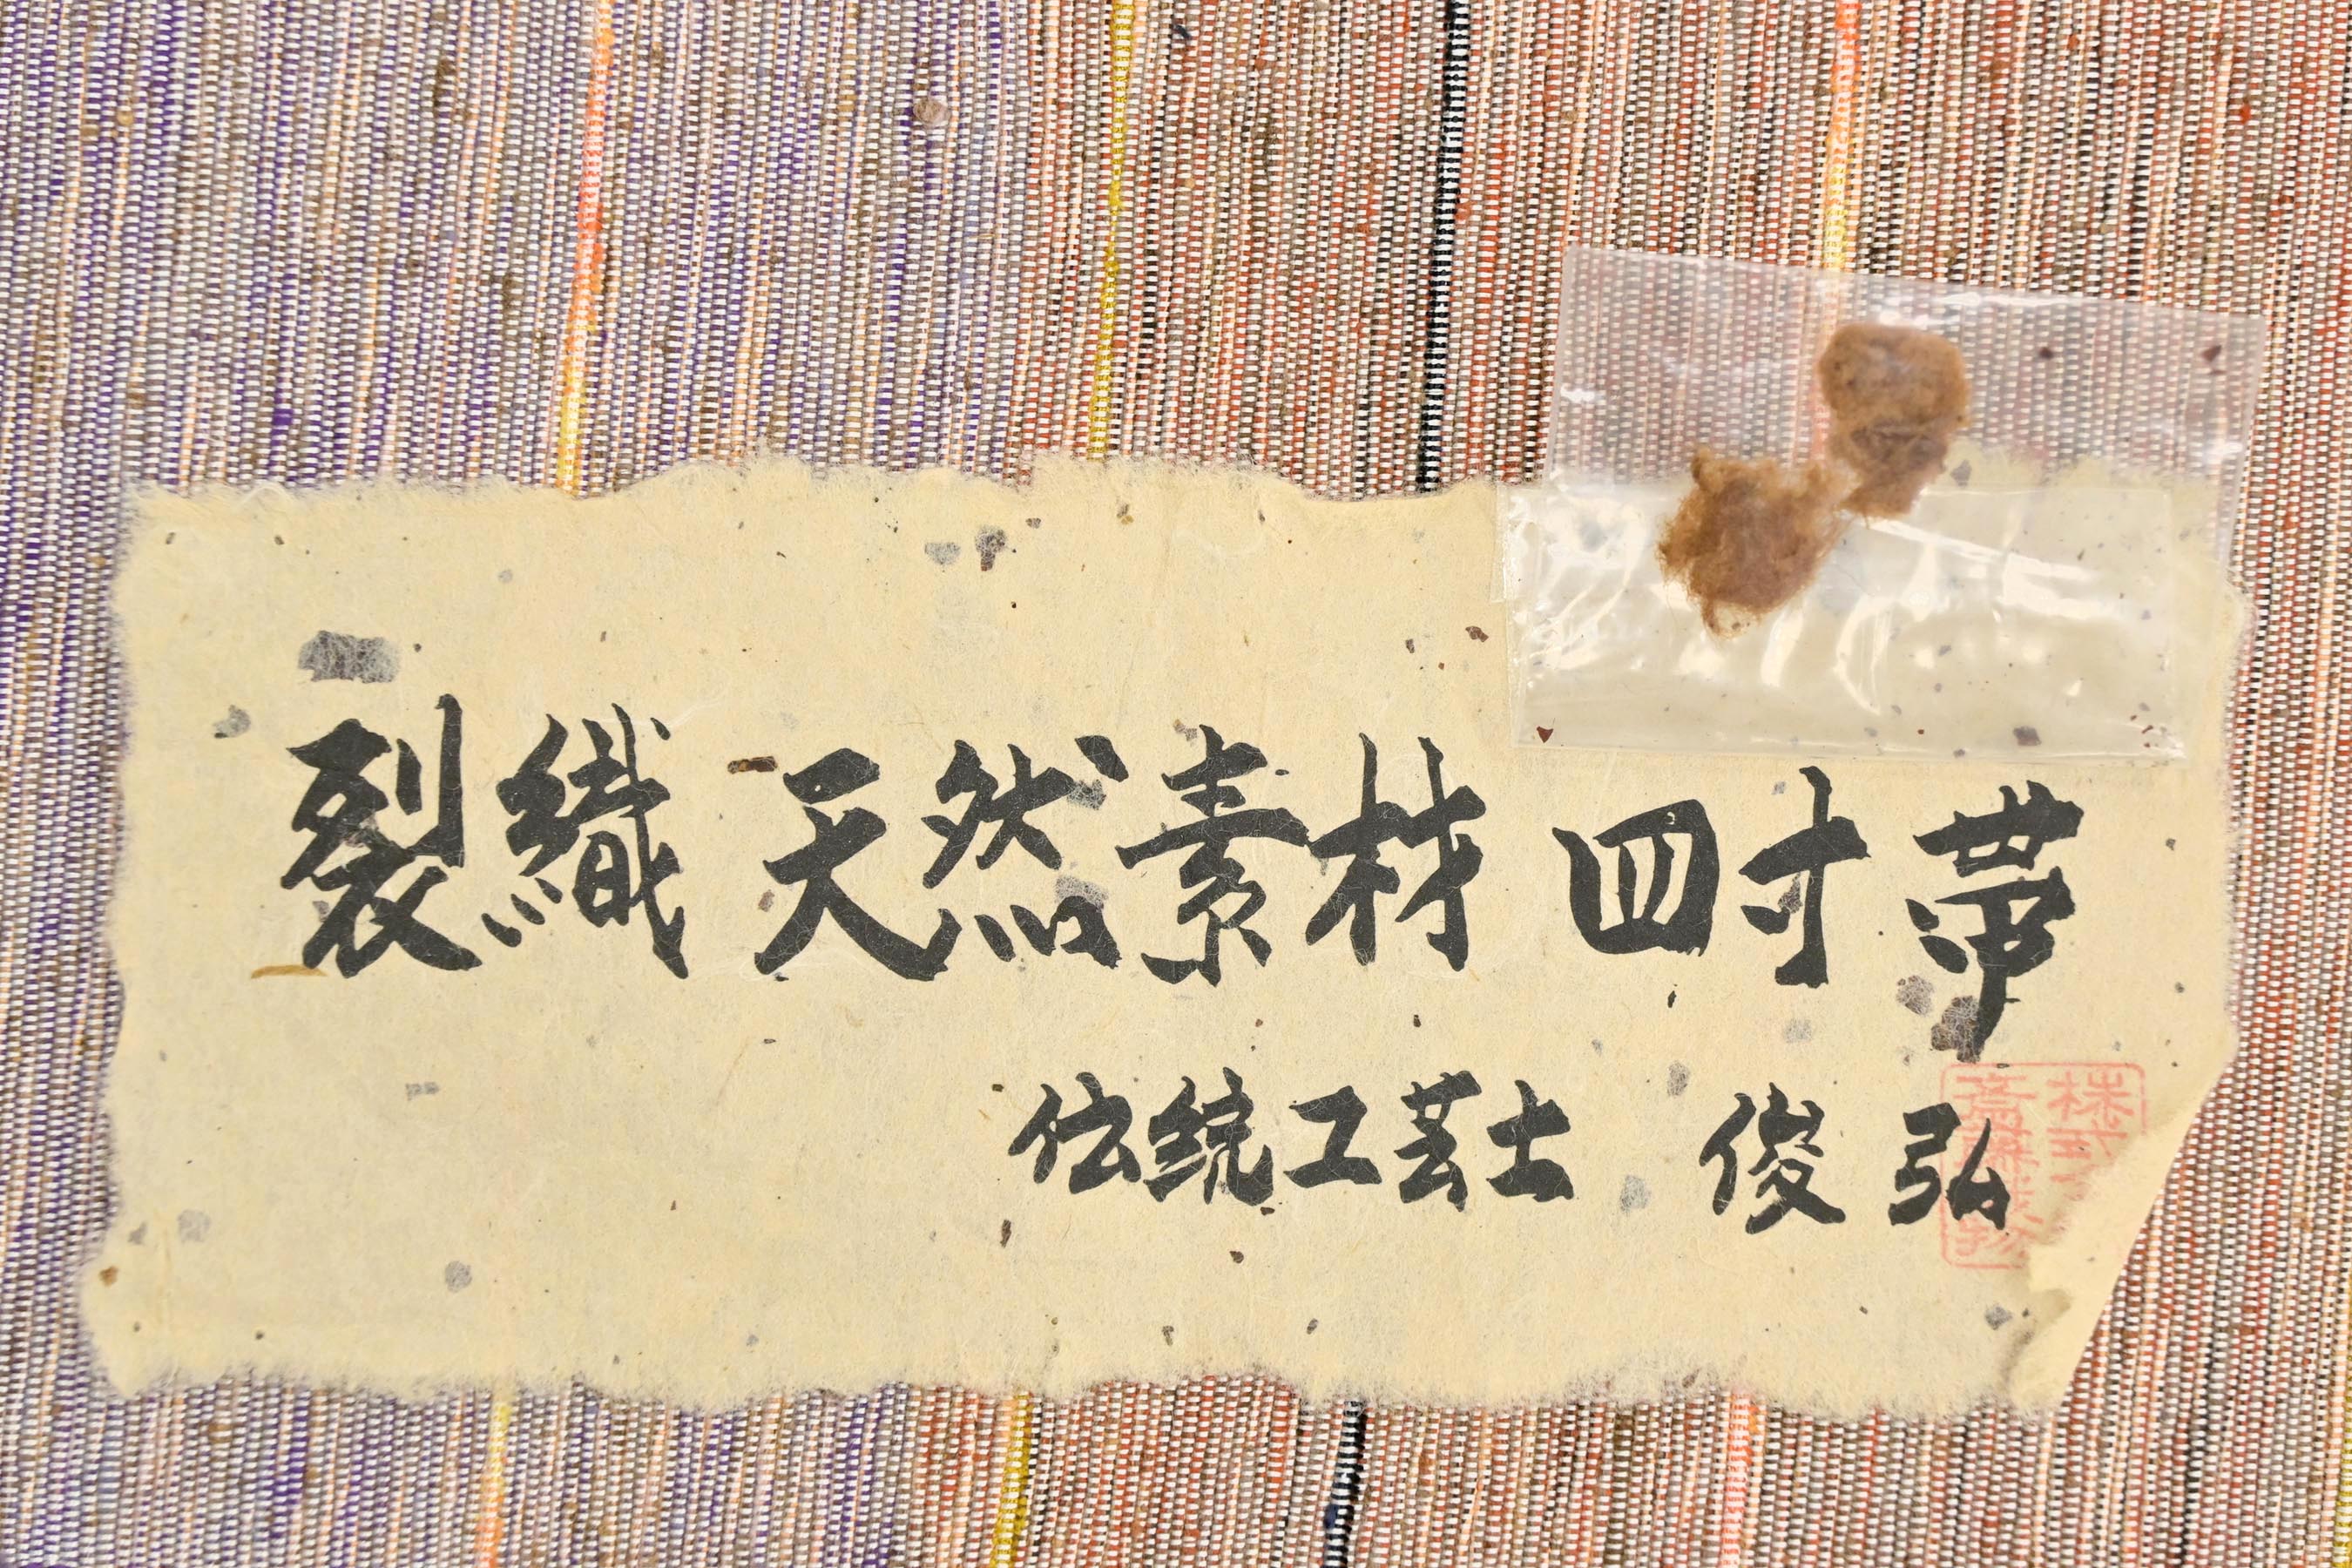 裂織 天然素材 四寸帯
伝統工芸士 俊弘
株式